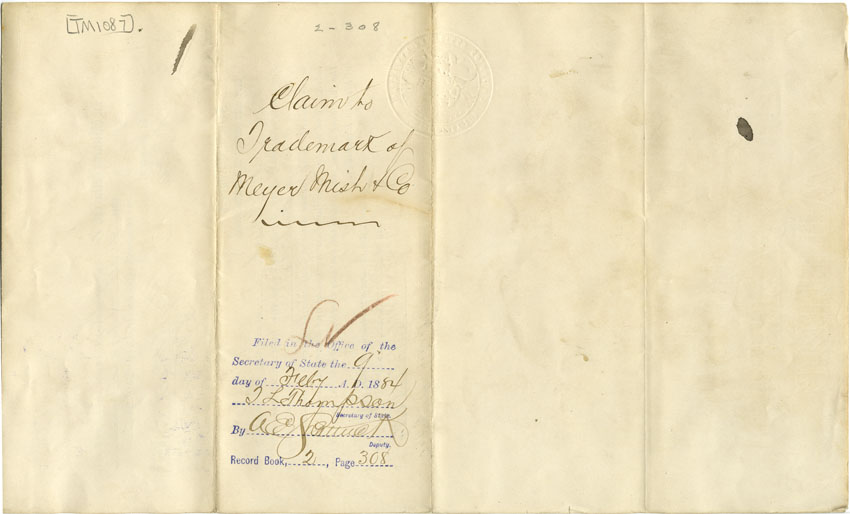 [TM1087].
2-308
Claim to
Trademark of
Meyer Mish & Co
Filed in the Office of the
Secretary of State the 9
day of Feby A.D. 1884
T L Thompson
Secretary of State.
By A E
Deputy.
Record Book, 2, Page 308